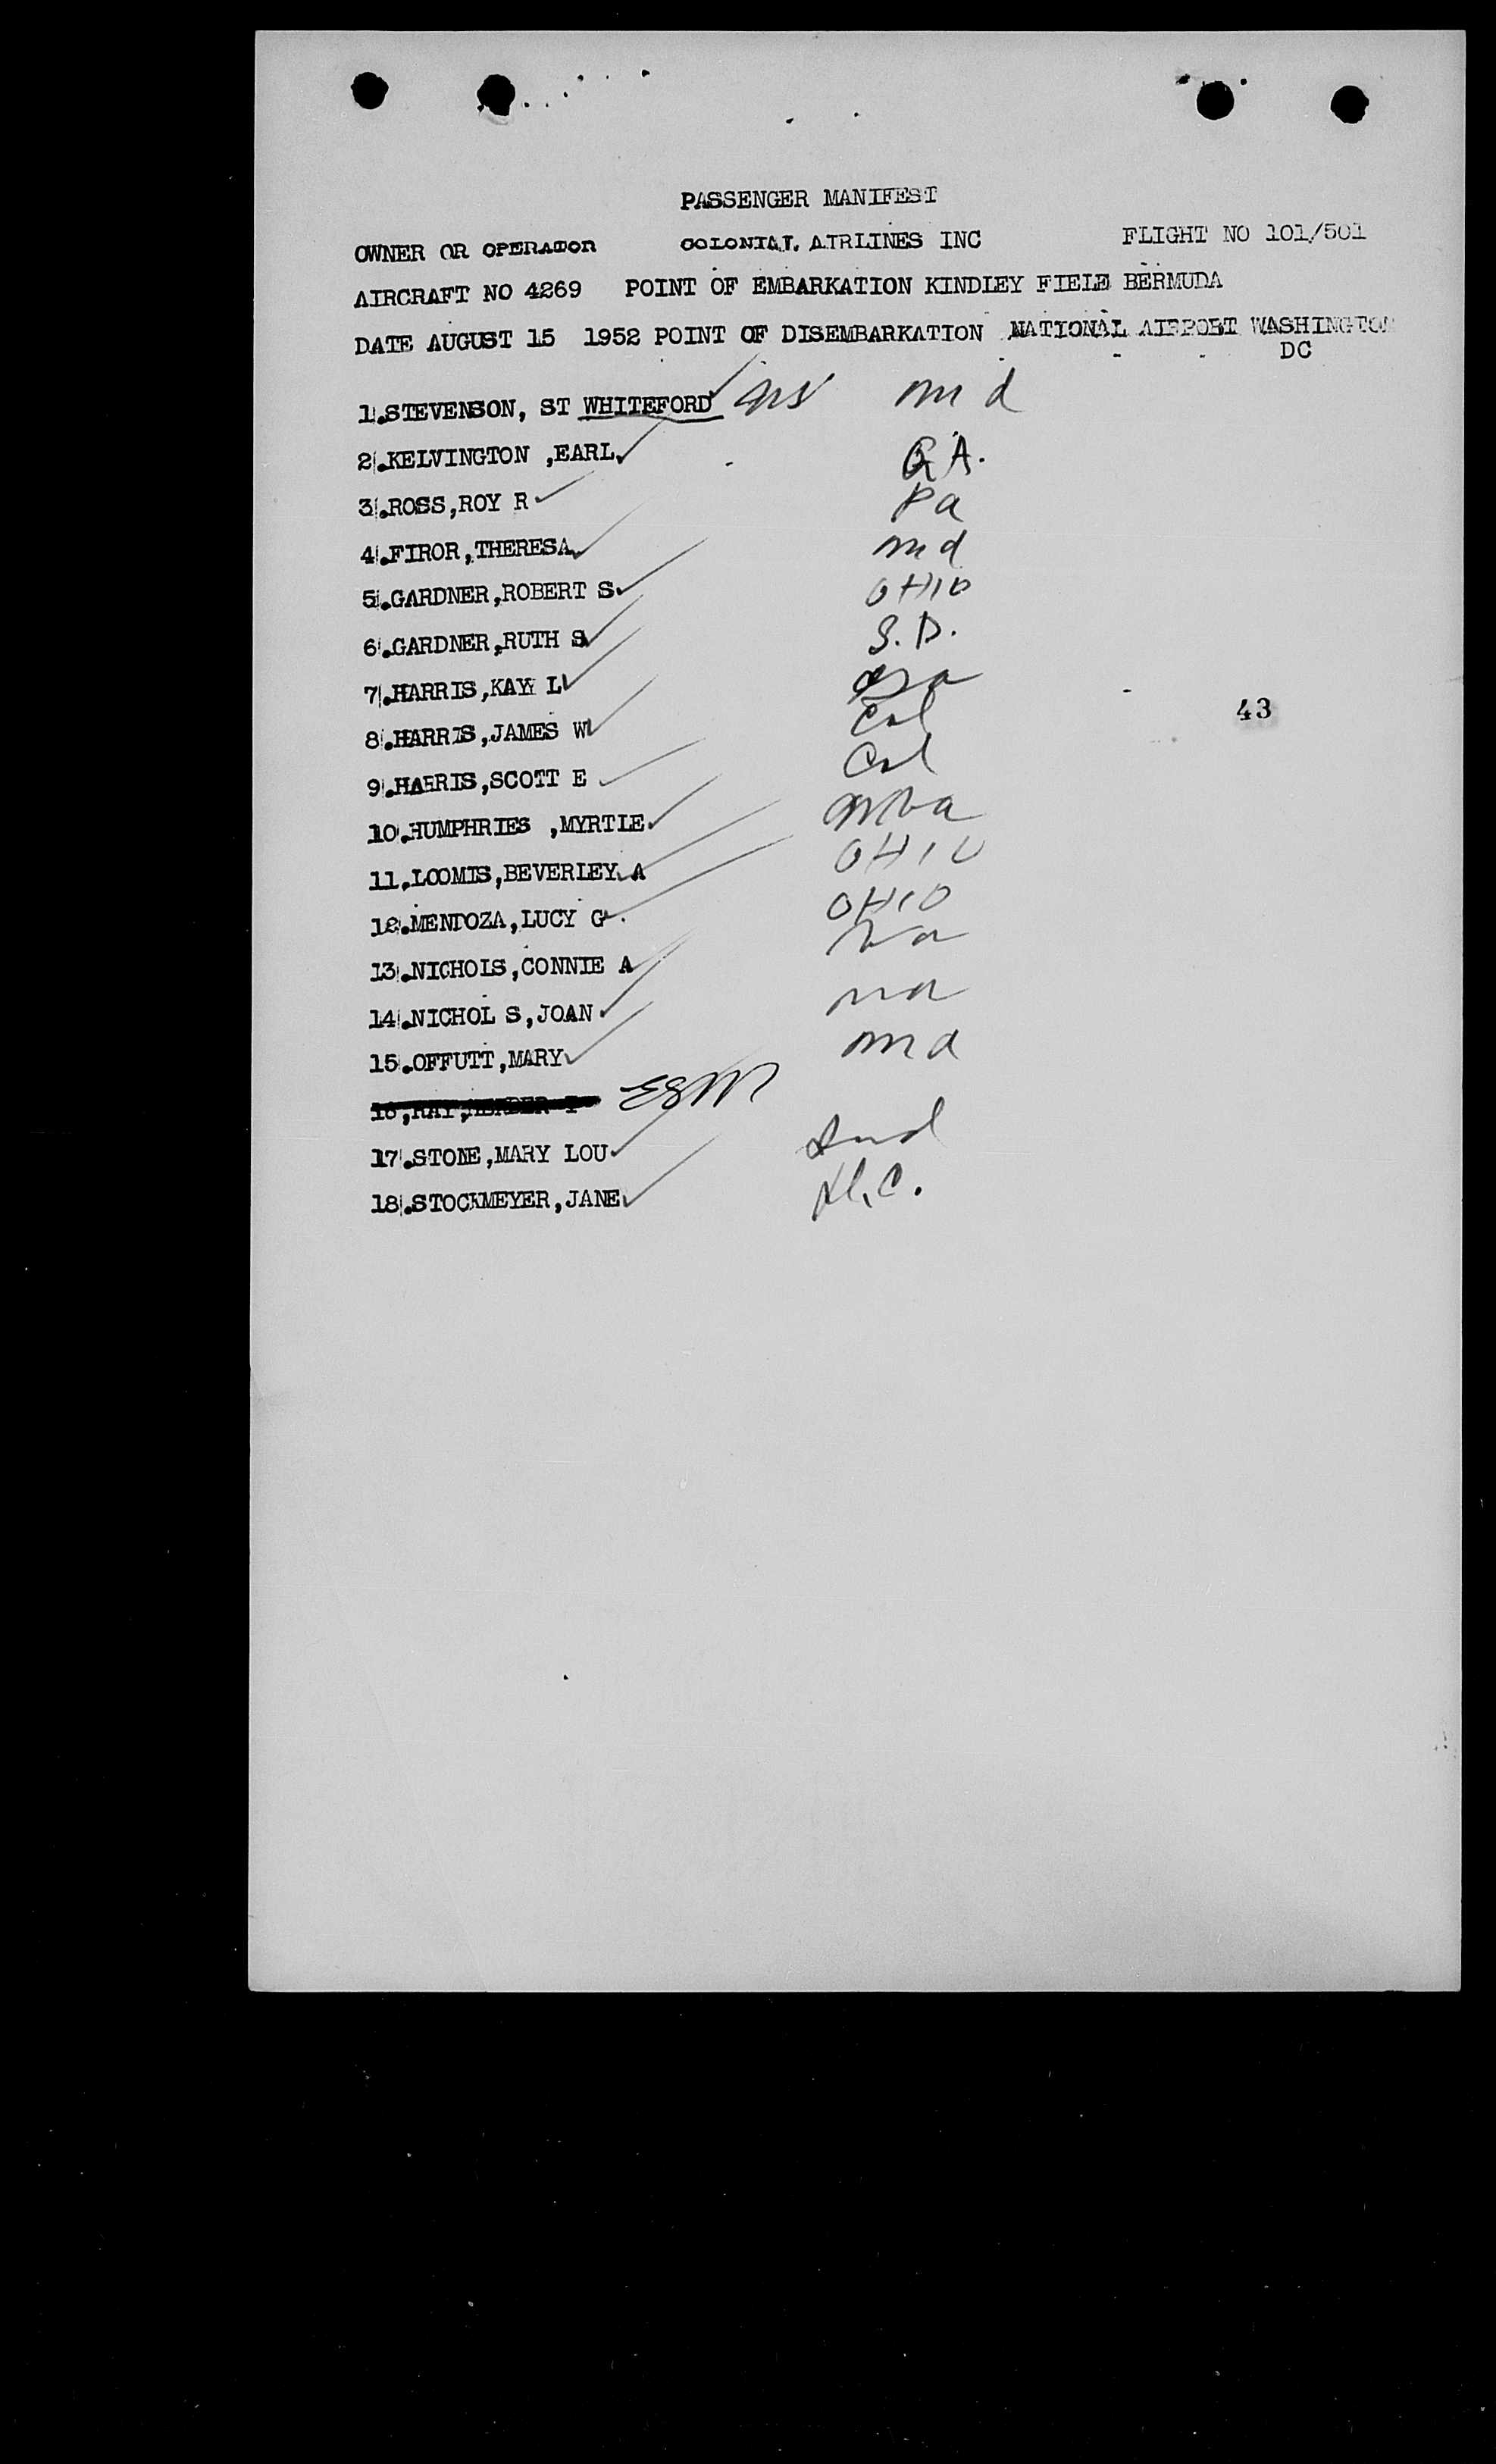 PASSENGER MANIFEST
OWNER OR OPERATOR COLONIAL AIRLINES INC FLIGHT NO 101/501
AIRCRAFT NO 4269 POINT OF EMBARKATION KINDLEY FIELD BERMUDA
DATE AUGUST 15 1952 POINT OF DISEMBARKATION NATIONAL AIRPORT WASHINGTON
DC
1.STEVENSON, ST WHITEFORD md
2.KELVINGTON ,EARL GA.
3.ROSS,ROY R Pa
4.FIROR,THERESA md
5.GARDNER,ROBERT S OHIO
6.GARDNER,RUTH S S.D.
7.HARRIS,KAY L
8.HARRIS,JAMES W Cal
9.HARRIS,SCOTT E Cal
10.HUMPHRIES ,MYRTLE
11.LOOMIS,BEVERLEY A OHIO
12.MENDOZA,LUCY G. OHIO
13.NICHOLS,CONNIE A Va
14.NICHOL S,JOAN
15.OFFUTT,MARY md
16,RAY, EGM
17.STONE,MARY LOU Ind
18.STOCKMEYER,JANE D.C.
43